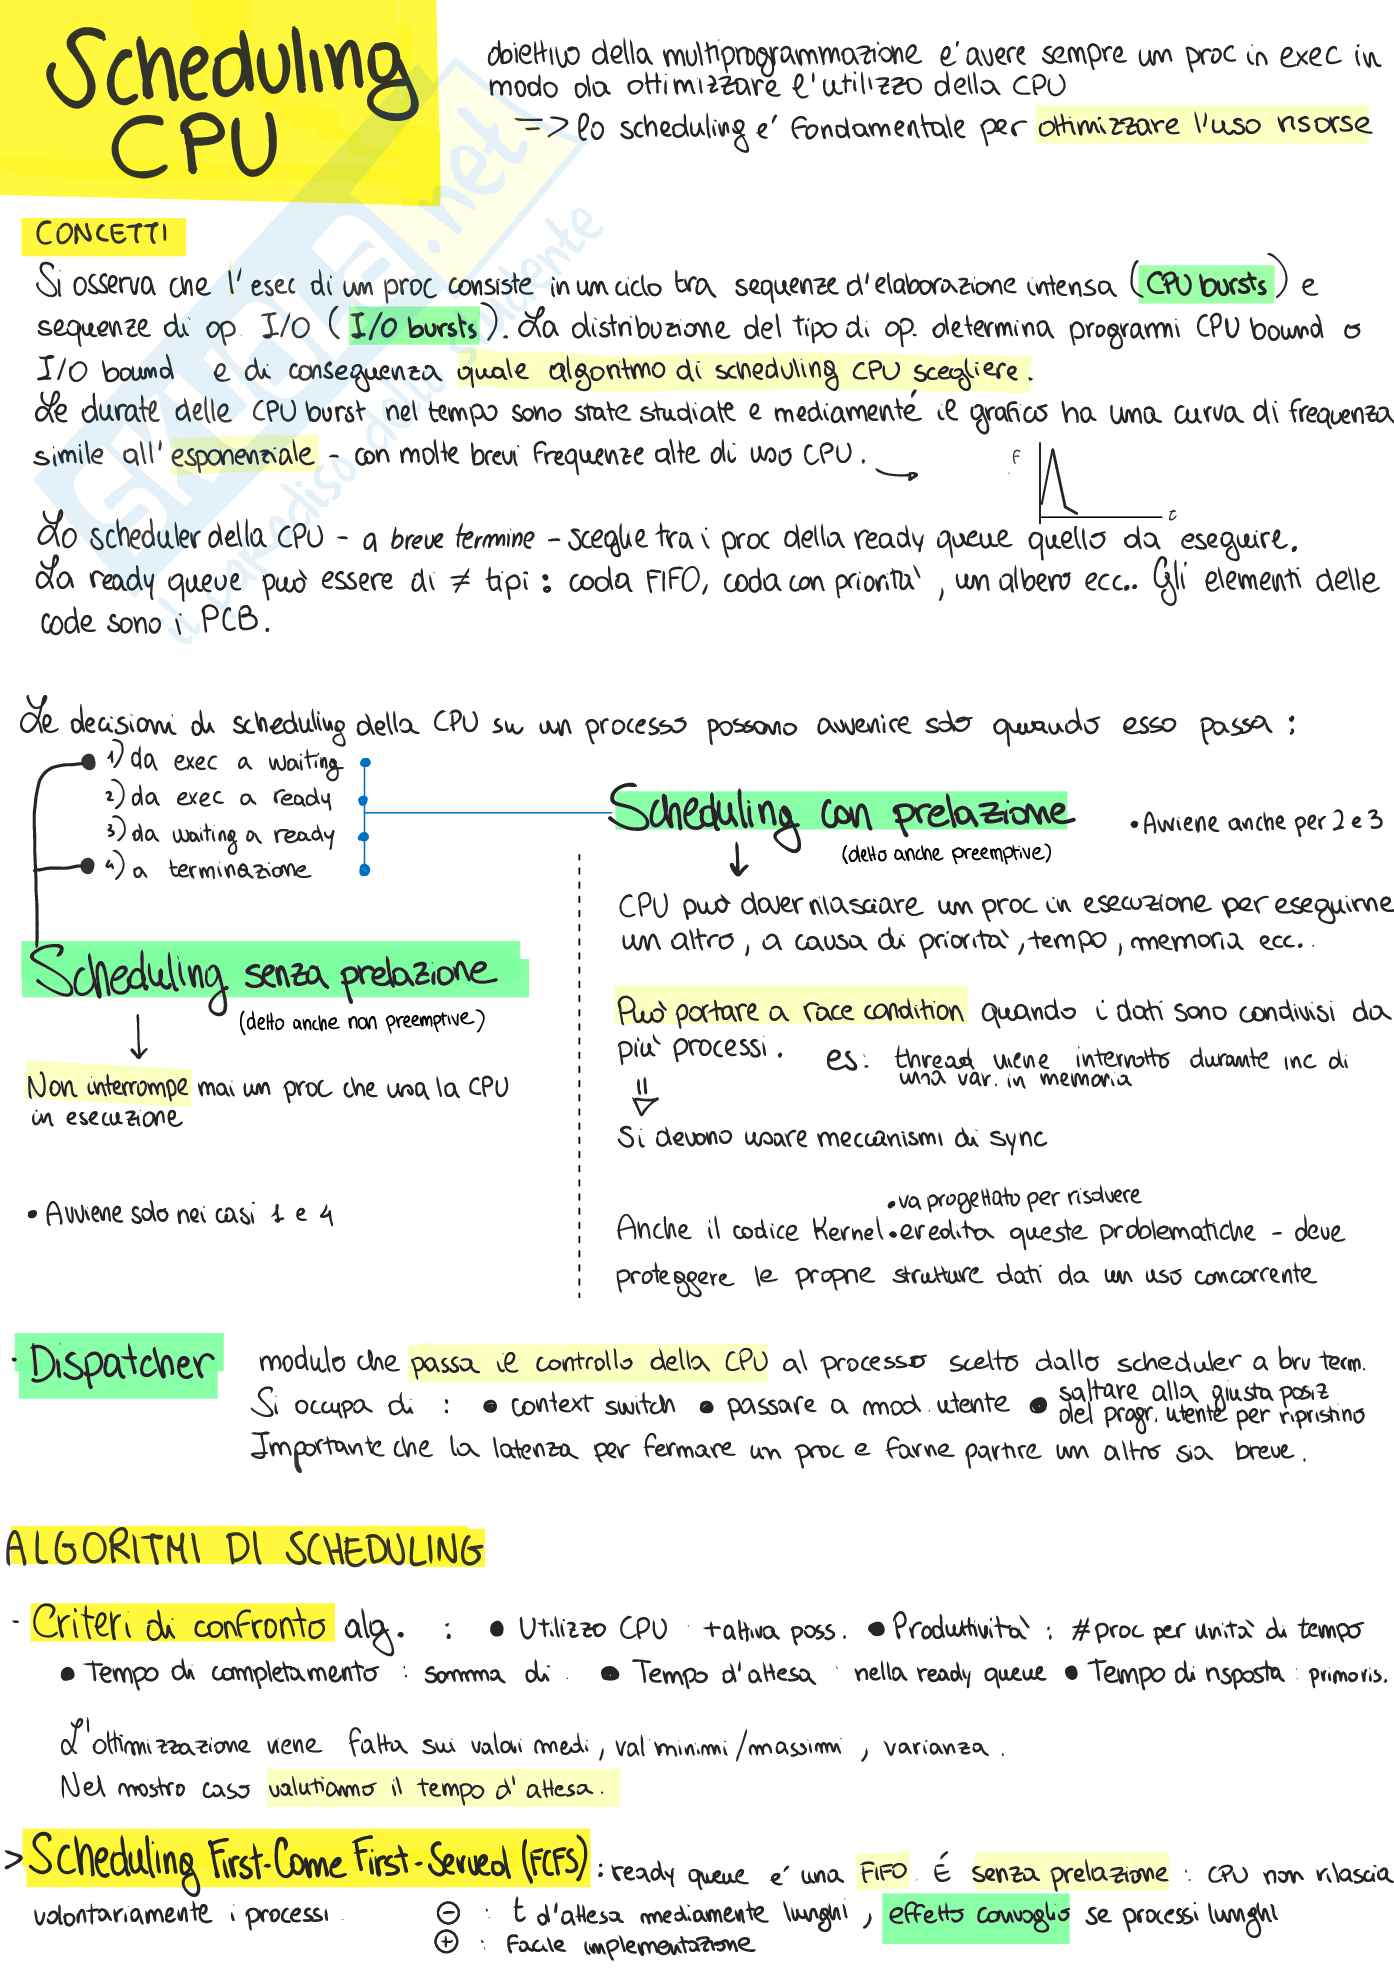 Scheduling
CPU
obiettivo della multiprogrammazione e' avere sempre un proc in exec in
modo da ottimizzare l'utilizzo della CPU
=> lo scheduling e' fondamentale per ottimizzare l'uso risorse
CONCETTI
Si osserva che l'esec di un proc consiste in un ciclo tra sequenze d'elaborazione intensa (CPU bursts) e
sequenze di op I/O (I/O bursts). La distribuzione del tipo di op. determina programmi CPU bound o
I/O bound e di conseguenza quale algoritmo di scheduling CPU scegliere.
Le durate delle CPU burst nel tempo sono state studiate e mediamente il grafico ha una curva di frequenza
simile all'esponenziale - con molte brevi frequenze alte di uso CPU.
f
t
Lo scheduler della CPU - a breve termine - sceglie tra i proc della ready queue quello da eseguire.
La ready queue può essere di ≠ tipi : coda FIFO, coda con priorita', un albero ecc.. Gli elementi delle
code sono i PCB.
Le decisioni di scheduling della CPU su un processo possono avvenire solo quando esso passa :
1) da exec a waiting
2) da exec a ready
3) da waiting a ready
4) a terminazione
Scheduling con prelazione
• Avviene anche per 2 e 3
(detto anche preemptive)
CPU può dover rilasciare un proc in esecuzione per eseguirne
un altro, a causa di priorita', tempo, memoria ecc..
Scheduling senza prelazione
(detto anche non preemptive)
Può portare a race condition quando i dati sono condivisi da
piu' processi. es: thread viene interrotto durante inc di
una var. in memoria
Non interrompe mai un proc che usa la CPU
in esecuzione
Si devono usare meccanismi di sync
• Avviene solo nei casi 1 e 4
• va progettato per risolvere
Anche il codice Kernel • eredita queste problematiche - deve
proteggere le proprie strutture dati da un uso concorrente
- Dispatcher modulo che passa il controllo della CPU al processo scelto dallo scheduler a brv term.
Si occupa di : • context switch • passare a mod. utente • saltare alla giusta posiz
del progr. utente per ripristino
Importante che la latenza per fermare un proc e farne partire un altro sia breve.
ALGORITMI DI SCHEDULING
- Criteri di confronto alg. : • Utilizzo CPU : + attiva poss. • Produttivita' : # proc per unita' di tempo
• Tempo di completamento : somma di • Tempo d'attesa : nella ready queue • Tempo di risposta : primo ris.
L'ottimizzazione viene fatta sui valori medi, val minimi/massimi, varianza.
Nel nostro caso valutiamo il tempo d'attesa.
> Scheduling First-Come First-Served (FCFS) : ready queue e' una FIFO. É senza prelazione : CPU non rilascia
volontariamente i processi.
⊖ : t d'attesa mediamente lunghi, effetto convoglio se processi lunghi
⊕ : facile implementazione
SKUOLA.net
il paradiso dello studente